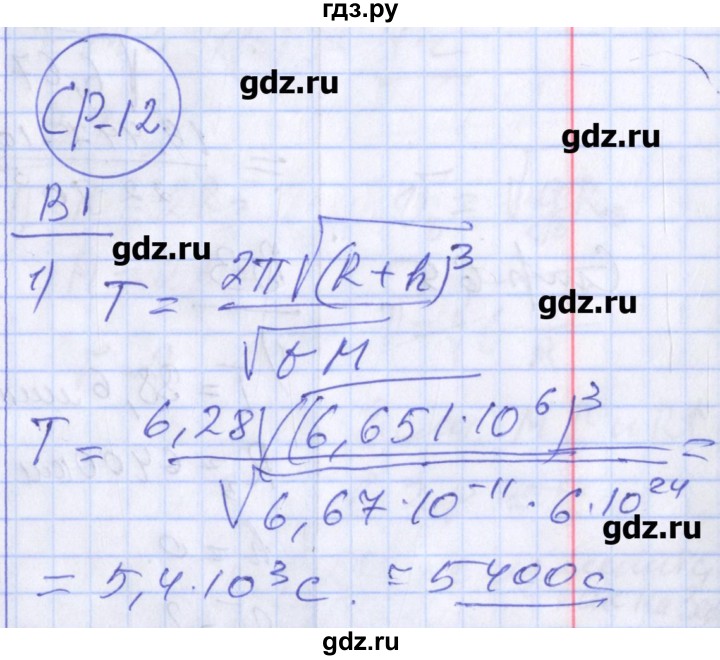 гдз.ру
СР-12.
gdz.ru
gdz.ru
В1
gdz.ru
1) T = 2π√(R+h)³ / √GM
gdz.ru
T = 6,28√(6,651·10⁶)³ / √6,67·10⁻¹¹·6·10²⁴ =
gdz.ru
= 5,4·10³с. = 5400с
gdz.ru